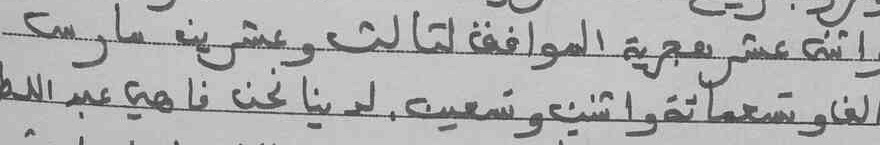 واثنى عشر هجرية الموافق لثالث وعشرين مارس
الف وتسعمائة واثنين وتسعين. لدينا نحن فاهي عبد اللط